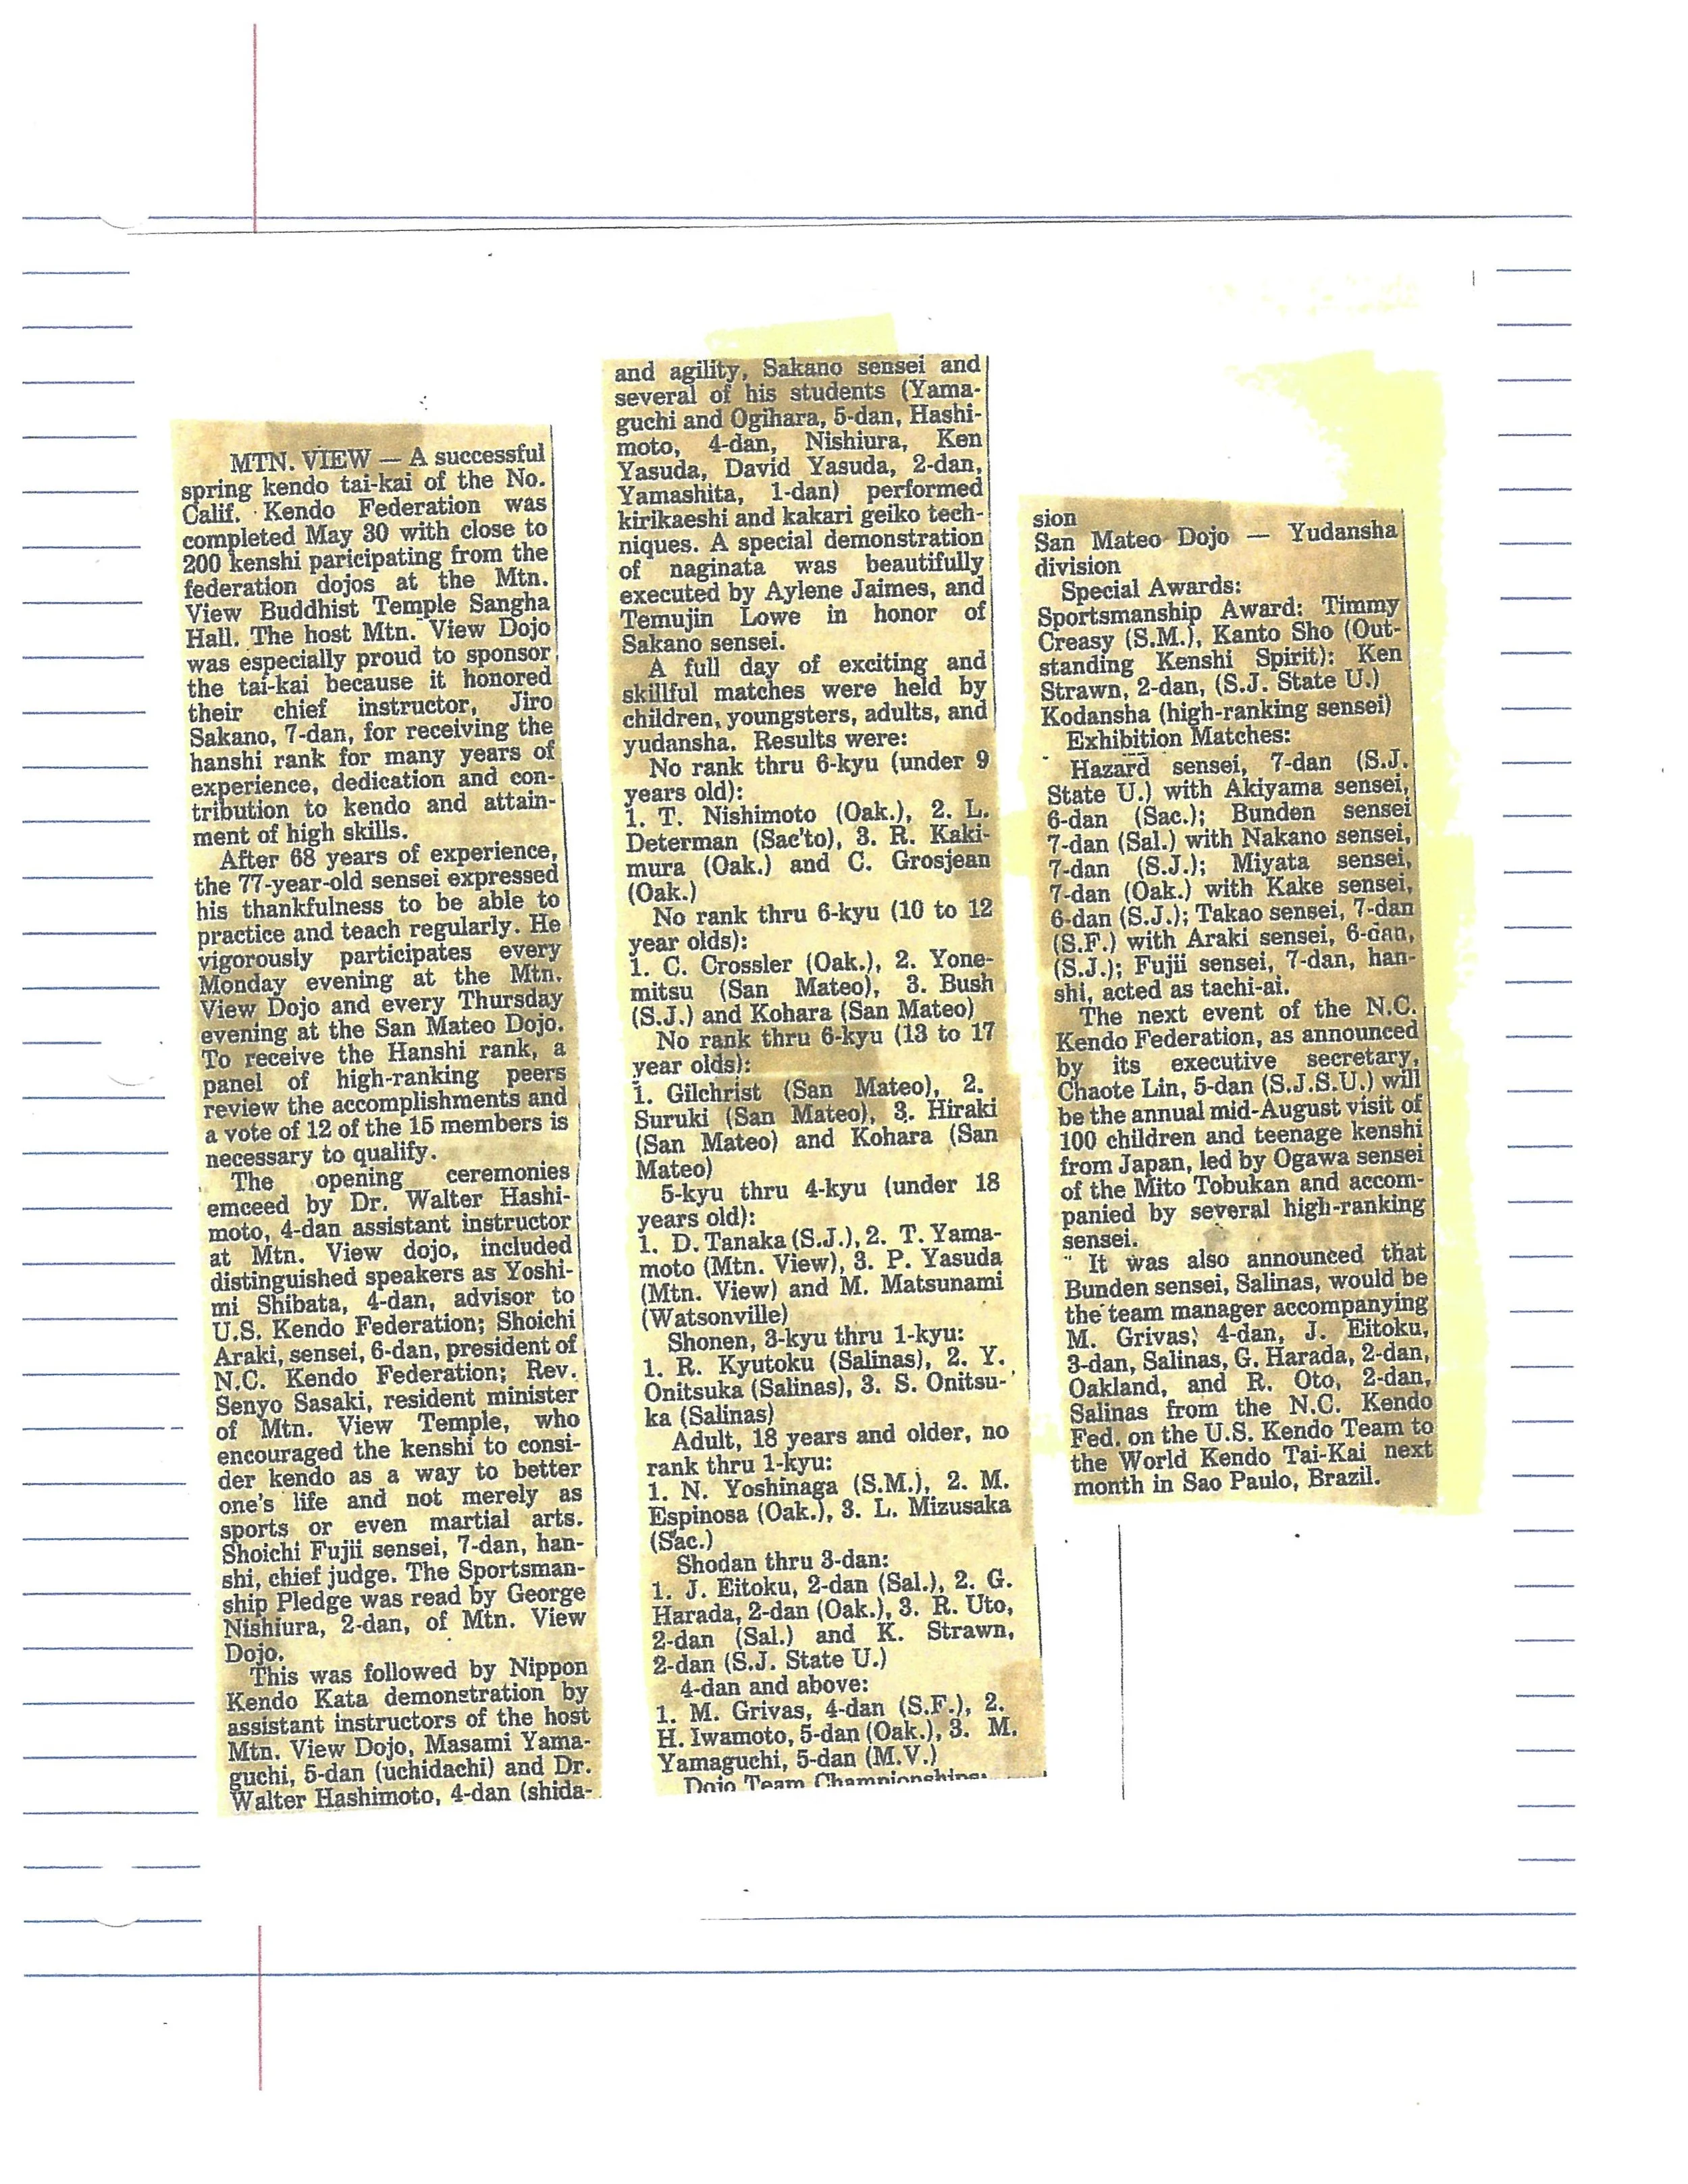 MTN. VIEW — A successful
spring kendo tai-kai of the No.
Calif. Kendo Federation was
completed May 30 with close to
200 kenshi paricipating from the
federation dojos at the Mtn.
View Buddhist Temple Sangha
Hall. The host Mtn. View Dojo
was especially proud to sponsor
the tai-kai because it honored
their chief instructor, Jiro
Sakano, 7-dan, for receiving the
hanshi rank for many years of
experience, dedication and con-
tribution to kendo and attain-
ment of high skills.
After 68 years of experience,
the 77-year-old sensei expressed
his thankfulness to be able to
practice and teach regularly. He
vigorously participates every
Monday evening at the Mtn.
View Dojo and every Thursday
evening at the San Mateo Dojo.
To receive the Hanshi rank, a
panel of high-ranking peers
review the accomplishments and
a vote of 12 of the 15 members is
necessary to qualify.
The opening ceremonies
emceed by Dr. Walter Hashi-
moto, 4-dan assistant instructor
at Mtn. View dojo, included
distinguished speakers as Yoshi-
mi Shibata, 4-dan, advisor to
U.S. Kendo Federation; Shoichi
Araki, sensei, 6-dan, president of
N.C. Kendo Federation; Rev.
Senyo Sasaki, resident minister
of Mtn. View Temple, who
encouraged the kenshi to consi-
der kendo as a way to better
one's life and not merely as
sports or even martial arts.
Shoichi Fujii sensei, 7-dan, han-
shi, chief judge. The Sportsman-
ship Pledge was read by George
Nishiura, 2-dan, of Mtn. View
Dojo.
This was followed by Nippon
Kendo Kata demonstration by
assistant instructors of the host
Mtn. View Dojo, Masami Yama-
guchi, 5-dan (uchidachi) and Dr.
Walter Hashimoto, 4-dan (shida-
and agility, Sakano sensei and
several of his students (Yama-
guchi and Ogihara, 5-dan, Hashi-
moto, 4-dan, Nishiura, Ken
Yasuda, David Yasuda, 2-dan,
Yamashita, 1-dan) performed
kirikaeshi and kakari geiko tech-
niques. A special demonstration
of naginata was beautifully
executed by Aylene Jaimes, and
Temujin Lowe in honor of
Sakano sensei.
A full day of exciting and
skillful matches were held by
children, youngsters, adults, and
yudansha. Results were:
No rank thru 6-kyu (under 9
years old):
1. T. Nishimoto (Oak.), 2. L.
Determan (Sac'to), 3. R. Kaki-
mura (Oak.) and C. Grosjean
(Oak.)
No rank thru 6-kyu (10 to 12
year olds):
1. C. Crossler (Oak.), 2. Yone-
mitsu (San Mateo), 3. Bush
(S.J.) and Kohara (San Mateo)
No rank thru 6-kyu (13 to 17
year olds):
1. Gilchrist (San Mateo), 2.
Suruki (San Mateo), 3. Hiraki
(San Mateo) and Kohara (San
Mateo)
5-kyu thru 4-kyu (under 18
years old):
1. D. Tanaka (S.J.), 2. T. Yama-
moto (Mtn. View), 3. P. Yasuda
(Mtn. View) and M. Matsunami
(Watsonville)
Shonen, 3-kyu thru 1-kyu:
1. R. Kyutoku (Salinas), 2. Y.
Onitsuka (Salinas), 3. S. Onitsu-
ka (Salinas)
Adult, 18 years and older, no
rank thru 1-kyu:
1. N. Yoshinaga (S.M.), 2. M.
Espinosa (Oak.), 3. L. Mizusaka
(Sac.)
Shodan thru 3-dan:
1. J. Eitoku, 2-dan (Sal.), 2. G.
Harada, 2-dan (Oak.), 3. R. Uto,
2-dan (Sal.) and K. Strawn,
2-dan (S.J. State U.)
4-dan and above:
1. M. Grivas, 4-dan (S.F.), 2.
H. Iwamoto, 5-dan (Oak.), 3. M.
Yamaguchi, 5-dan (M.V.)
Dojo Team Championships:
sion
San Mateo Dojo — Yudansha
division
Special Awards:
Sportsmanship Award: Timmy
Creasy (S.M.), Kanto Sho (Out-
standing Kenshi Spirit): Ken
Strawn, 2-dan, (S.J. State U.)
Kodansha (high-ranking sensei)
Exhibition Matches:
Hazard sensei, 7-dan (S.J.
State U.) with Akiyama sensei,
6-dan (Sac.); Bunden sensei
7-dan (Sal.) with Nakano sensei,
7-dan (S.J.); Miyata sensei,
7-dan (Oak.) with Kake sensei,
6-dan (S.J.); Takao sensei, 7-dan
(S.F.) with Araki sensei, 6-dan,
(S.J.); Fujii sensei, 7-dan, han-
shi, acted as tachi-ai.
The next event of the N.C.
Kendo Federation, as announced
by its executive secretary,
Chaote Lin, 5-dan (S.J.S.U.) will
be the annual mid-August visit of
100 children and teenage kenshi
from Japan, led by Ogawa sensei
of the Mito Tobukan and accom-
panied by several high-ranking
sensei.
It was also announced that
Bunden sensei, Salinas, would be
the team manager accompanying
M. Grivas; 4-dan, J. Eitoku,
3-dan, Salinas, G. Harada, 2-dan,
Oakland, and R. Oto, 2-dan,
Salinas from the N.C. Kendo
Fed. on the U.S. Kendo Team to
the World Kendo Tai-Kai next
month in Sao Paulo, Brazil.